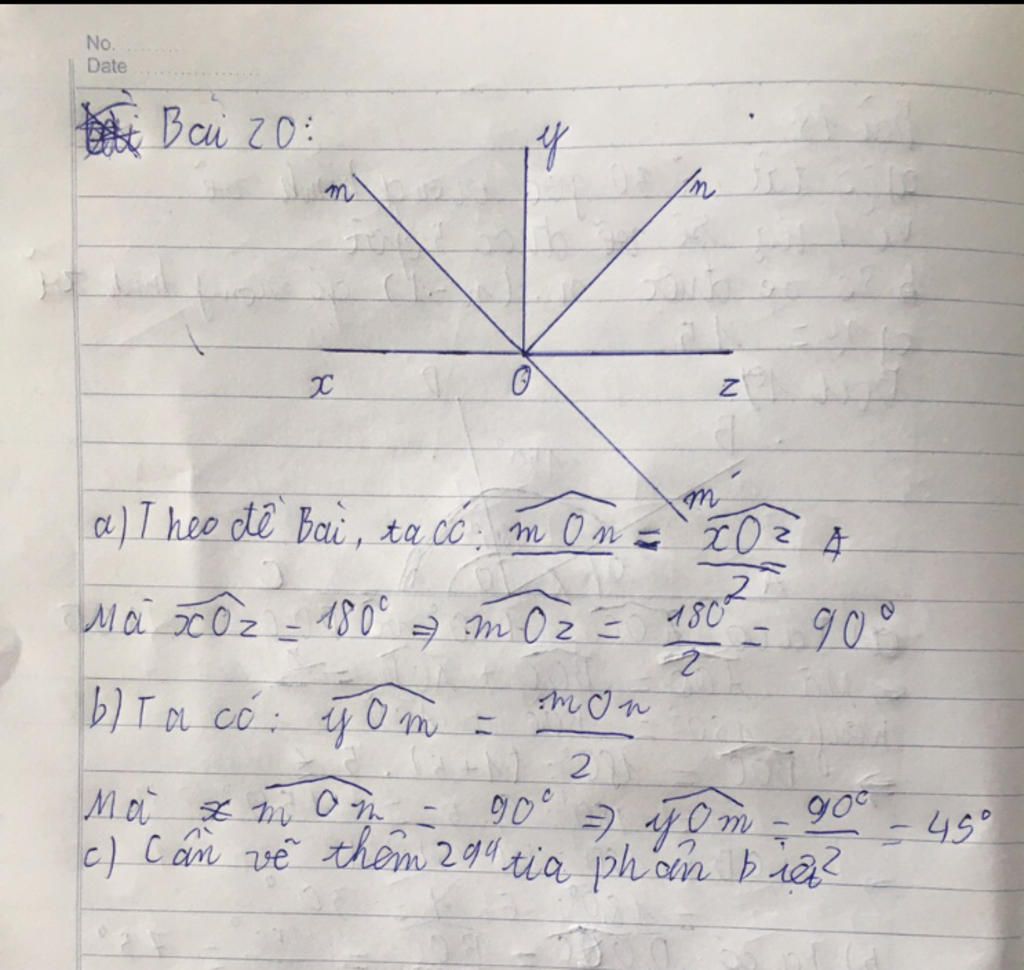 No.
Date
Bài 20:
y
m n
x O z
m'
a) Theo đề Bài, ta có: mOn = xOz / 2
Mà xOz = 180° ⇒ mOz = 180° / 2 = 90°
b) Ta có: yOm = mOn / 2
Mà mOn = 90° ⇒ yOm = 90° / 2 = 45°
c) Cần vẽ thêm 294 tia phân biệt